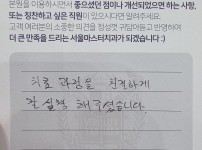 본원을 이용하시면서 좋으셨던 점이나 개선되었으면 하는 사항,
또는 칭찬하고 싶은 직원이 있으시다면 말씀해주세요.
고객 여러분의 소중한 의견을 정성껏 귀담아듣고 반영하여
더 큰 만족을 드리는 서울마스터치과가 되겠습니다 :)
치료 과정을 친절하게
잘 설명 해주셨습니다.